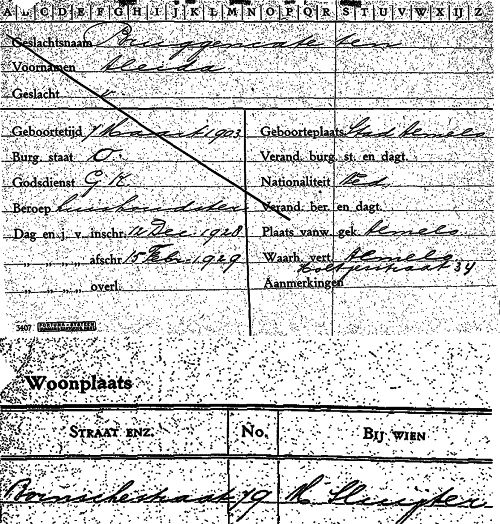 A B C D E F G H I J K L M N O P Q R S T U V W X IJ Z
Geslachtsnaam Bruggencate ten
Voornamen Aleida
Geslacht v
Geboortetijd 1 Maart 1903 Geboorteplaats Stad Almelo
Burg. staat O. Verand. burg. st. en dagt.
Godsdienst G K Nationaliteit Ned.
Beroep huishoudster Verand. ber. en dagt.
Dag en j. v. inschr. 12 Dec. 1928 Plaats vanw. gek. Almelo
„ „ „ „ afschr. 15 Febr. 1929 Waarh. vert. Almelo
34
„ „ „ „ overl. Aanmerkingen
3407
Woonplaats
STRAAT ENZ. No. BIJ WIEN
79 Sluijter